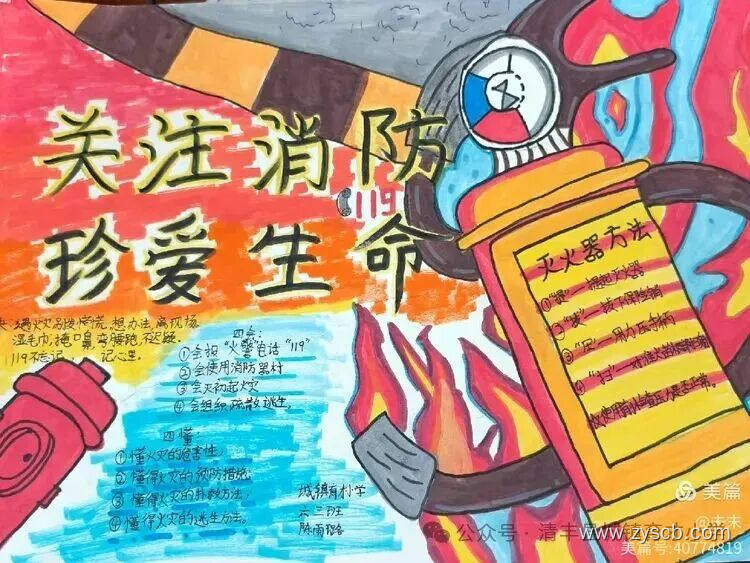 关注消防
119
珍爱生命
遇火灾别慌慌,想办法,离现场,
湿毛巾,掩口鼻,弯腰跑,不迟疑,
119不忘记, 记心里。
四会:
①会报“火警”电话“119”
②会使用消防器材
③会灭初起火灾
④会组织疏散逃生。
四懂:
①懂火灾的危害性,
②懂得火灾的预防措施,
③懂得火灾的扑救方法,
④懂得火灾的逃生方法。
灭火器方法
①“提”一提起灭火器
②“拔”一拔下保险销
③“压”一用力压手柄
④“扫”一对准火
六三班
美篇
公众号·清丰县
www.zyscb.com
美篇号:40774819